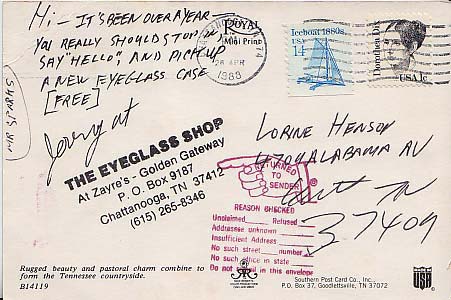 Hi - IT'S BEEN OVER A YEAR
YOU REALLY SHOULD STOP BY
SAY "HELLO", AND PICK UP
A NEW EYEGLASS CASE
[FREE]
Jerry at
THE EYEGLASS SHOP
At Zayre's - Golden Gateway
P. O. Box 9187
Chattanooga, TN 37412
(615) 265-8346
26 APR
1988
Iceboat 1880s
USA
14
Dorothea Dix
USA 1c
LORINE HENSON
4704 ALABAMA AV
TN
37409
RETURNED
TO
SENDER
REASON CHECKED
Unclaimed Refused
Addressee unknown
Insufficient Address
No such street number
No such office in state
Do not remail in this envelope
Rugged beauty and pastoral charm combine to
form the Tennessee countryside.
B14119
Southern Post Card Co., Inc.,
P.O. Box 37, Goodlettsville, TN 37072